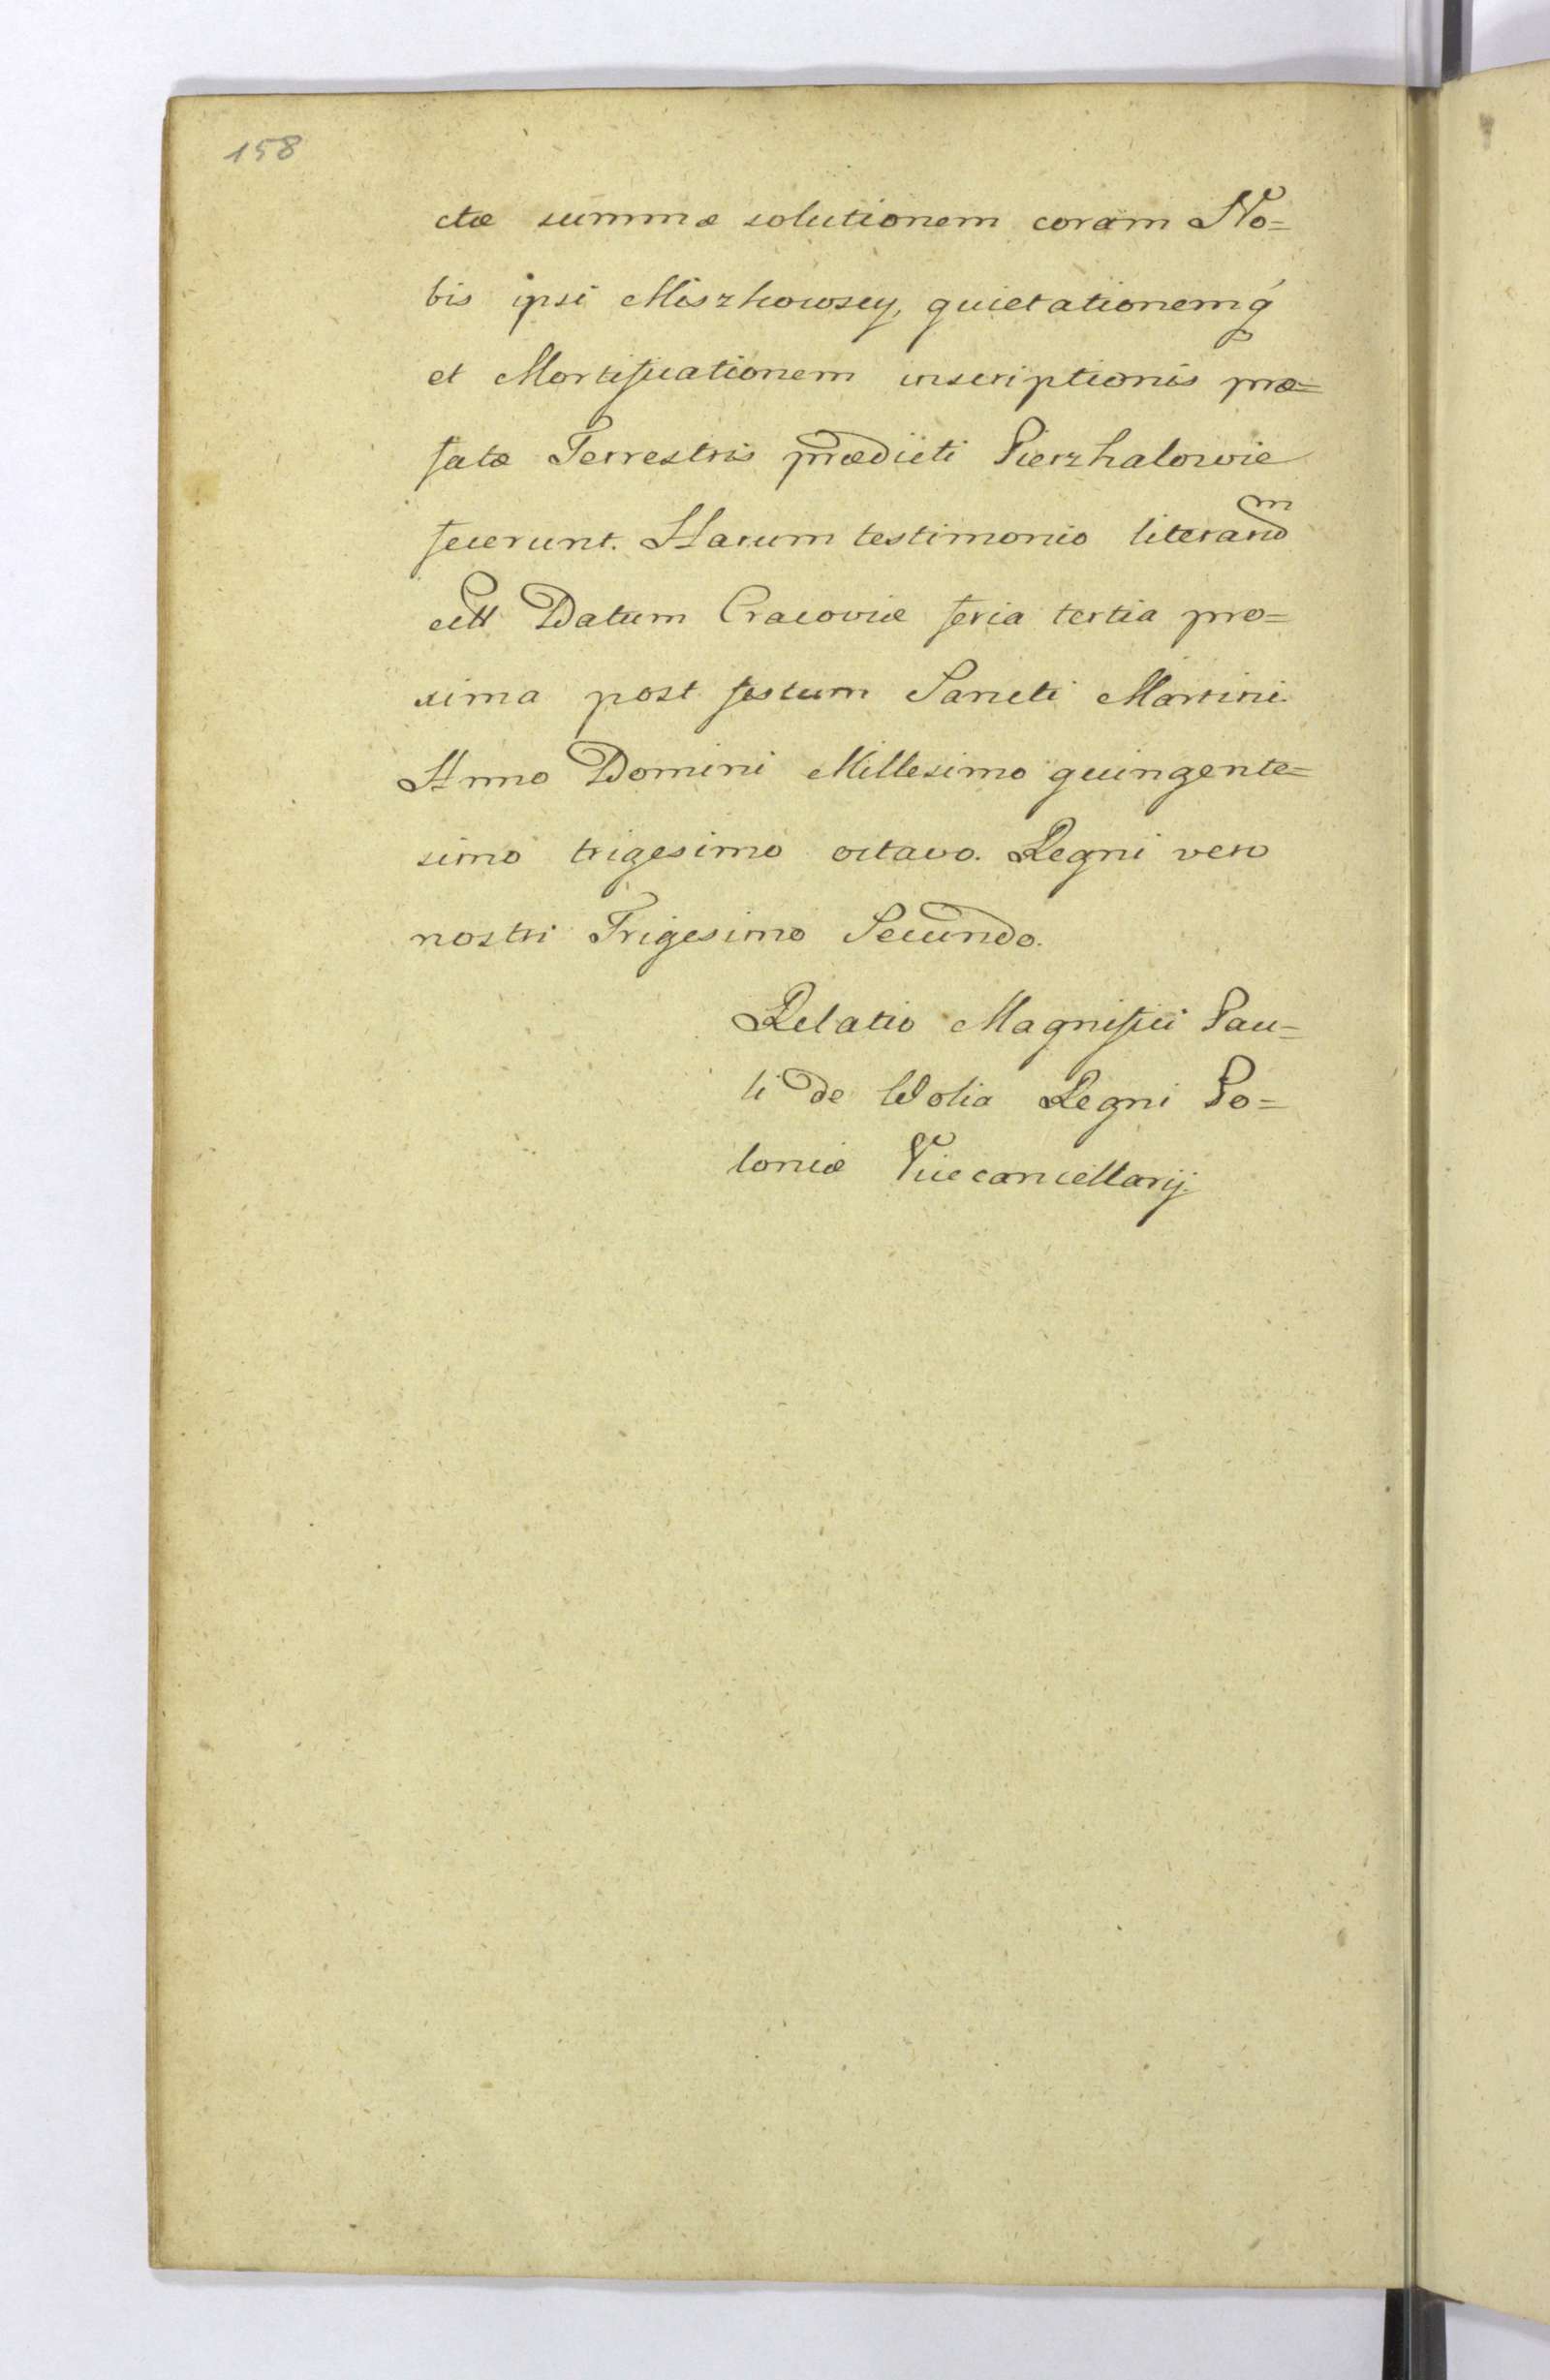 158
ctæ summæ solutionem coram No=
bis ipsi Miszkowscy, quietationemq́
et Mortificationem inscriptionis præ=
fatæ Terrestris prædicti Pierzhalowie
fecerunt. Harum testimonio literarū
ett Datum Cracoviæ feria tertia pro=
xima post festum Sancti Martini
Anno Domini Millesimo quingente=
simo trigesimo octavo. Regni vero
nostri Trigesimo Secundo.
Relatio Magnifici Pau=
li de Wolia Regni Po=
loniæ Vicecancellarij.